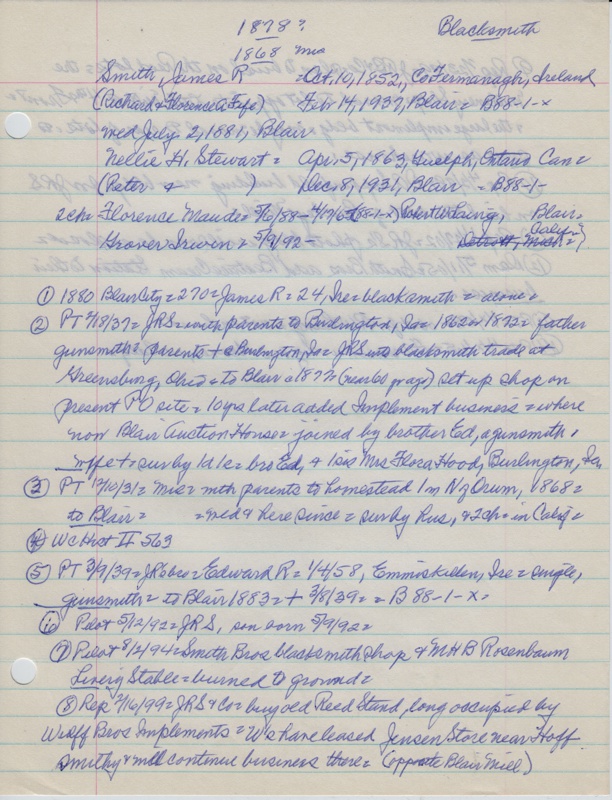 1878?
Blacksmith
1868 mia
Smith, James R = Oct, 10, 1852, Co Fermanagh, Ireland
(Richard & Florence A. Fife) Feb 14, 1937, Blair = B88-1-x
med July 2, 1881, Blair
Nellie H. Stewart = Apr. 5, 1863, Guelph, Ontario Can =
(Peter & ) Dec, 8, 1931, Blair = B88-1-
2ch = Florence Maude = 5/16/88 - (88-1-x) Robert W Laing, Blair =
Grover Irwin = 5/9/92 - Detroit, Mich = Calif =)
① 1880 Blair City = 270 = James R = 24, Ire = blacksmith = alone =
② PT 2/18/37 = JRS = with parents to Burlington, Ia = 1862 or 1872 = father
gunsmith = parents + @ Burlington, Ia = JRS into blacksmith trade at
Greensburg, Ohio = to Blair @ 1877 (near 60 yrs ago) set up shop on
present PO site = 10 yrs later added Implement business = where
now Blair Auction House = joined by brother Ed, a gunsmith,
wife + = sur by 1d 1s = bro Ed, & 1 sis Mrs Flora Hood, Burlington, Ia
③ PT 12/10/31 = Mia = with parents to homestead 1m N of Orum, 1868 =
to Blair = = med & here since = sur by hus, & 2ch = in Calif =
④ WC Hist II 563
⑤ PT 3/9/39 = JR bro = Edward R = 1/4/58, Enniskillen, Ire = single,
gunsmith = to Blair 1883 = + 3/8/39 = = B 88-1-x =
⑥ Pilot 5/12/92 = JRS, son born 5/9/92 =
⑦ Pilot 8/2/94 = Smith Bros blacksmith shop & MHB Rosenbaum
Livery Stable = burned to ground =
⑧ Rep 2/16/99 = JRS & Co = buy old Reed Stand, long occupied by
Wolff Bros Implements = Ws have leased Jensen Store near Hoff
smithy & will continue business there = (opposite Blair Mill)